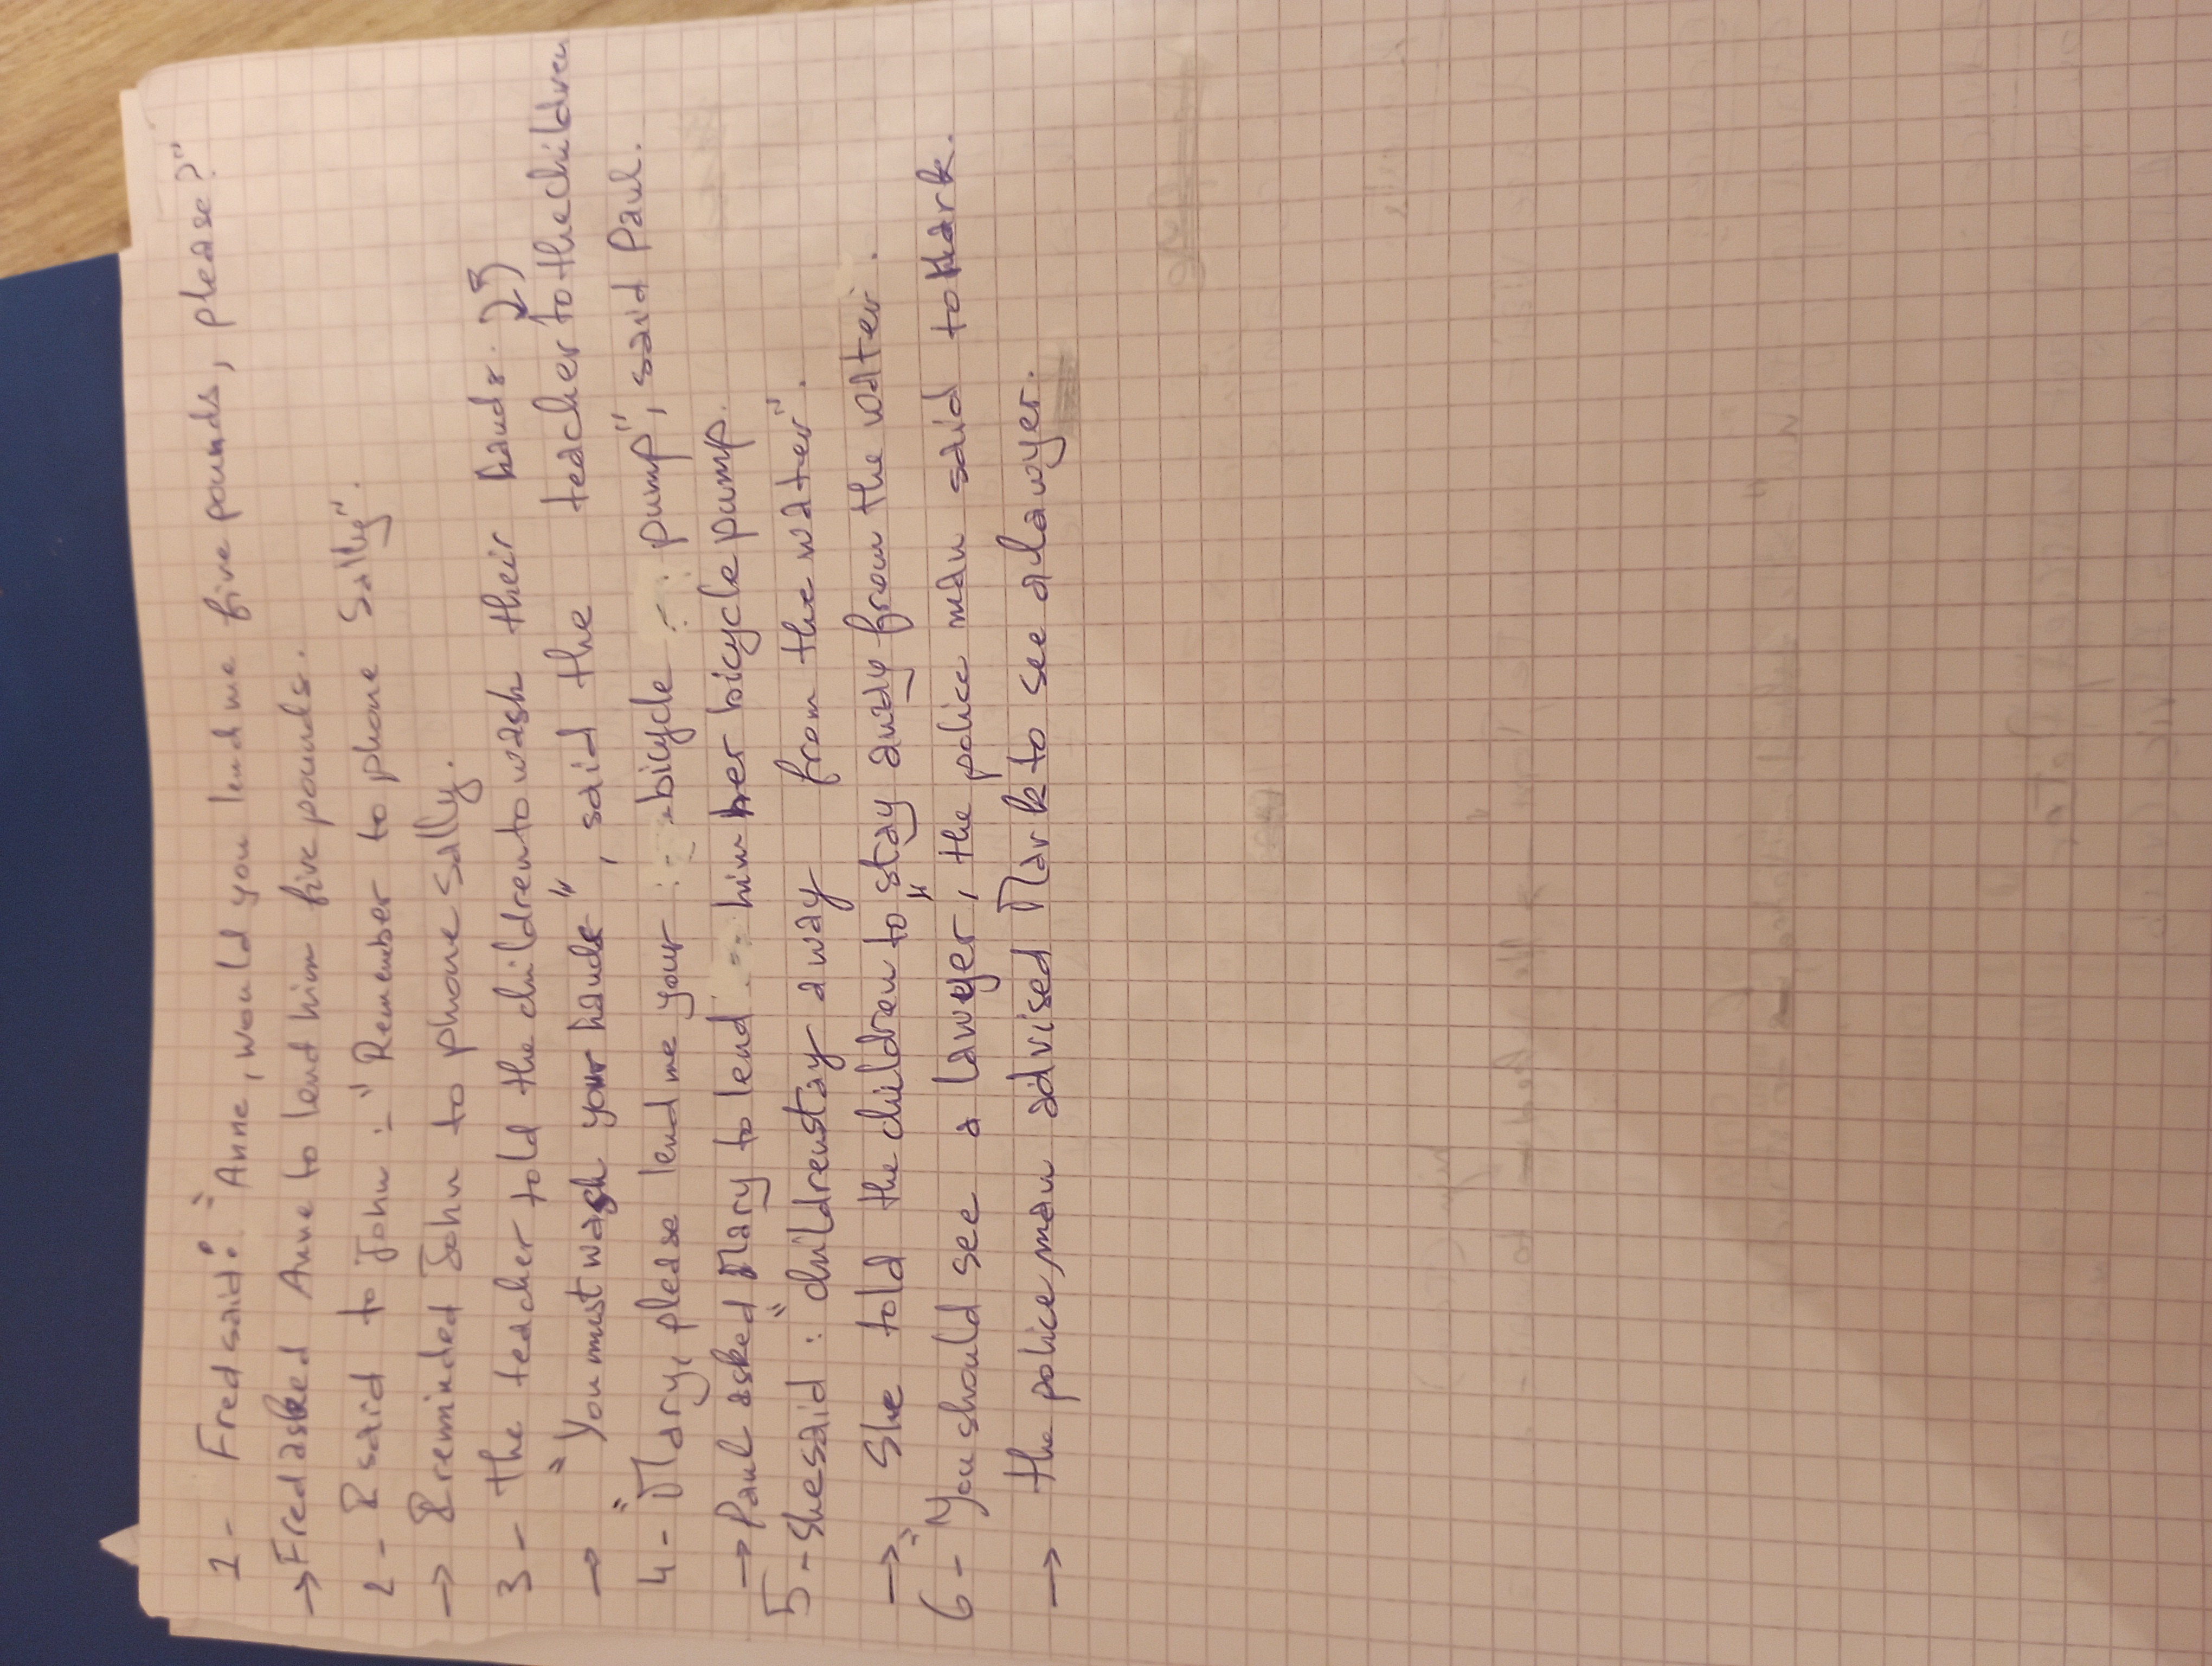 1- Fred said: "Anne, would you lend me five pounds, please?"
→ Fred asked Anne to lend him five pounds.
2- I said to John:- "Remember to phone Sally".
→ I reminded John to phone Sally.
3- The teacher told the children to wash their hands. 2)
→ "You must wash your hands", said the teacher to the children
4- "Mary, please lend me your bicycle pump", said Paul.
→ Paul asked Mary to lend him her bicycle pump.
5- She said: "children stay away from the water".
→ She told the children to stay away from the water.
6- "You should see a lawyer", the police man said to Mark.
→ The police man advised Mark to see a lawyer.